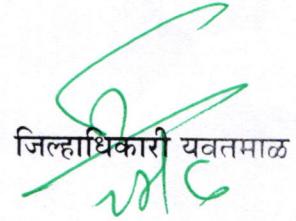 जिल्हाधिकारी यवतमाळ